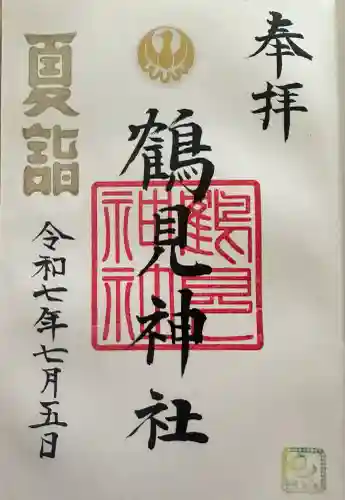 奉拝
鶴見神社
夏詣
令和七年七月五日
鶴見
神社